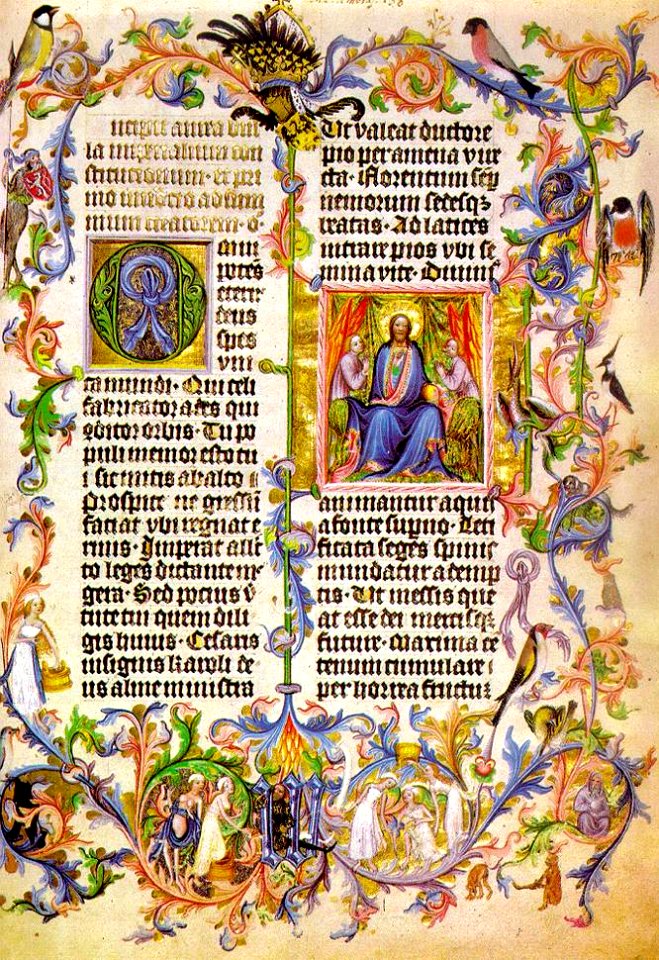 incipit aurea bul
la imperialium con
stitucionum· et pri
mo invocacio ad sum
mum creatorem· O
mni
potēs
eterne
deus
spes
vni
ca mundi· Qui celi
fabricator ades qui
ꝯditor orbis· Tu po
puli memor esto tu
i sic mitis ab alto
Prospice ne gressū
faciat vbi regnat e
rinis· Imperat alle
to leges dictante me
gera· Sed pocius v̄
tute tui quem dili
gis huius· Cesaris
insignis karoli de
us alme ministra
Vt valeat ductore
pio per amena vire
cta· Florentum sep̄
nemorum sedesqꝫ
beatas· Ad latices
intrare pios vbi se
mina vite· Diuinis
animantur aquis
a fonte sup̄no· Leti
ficata seges spinis
mundatur ademp
tis· Vt messis que
at esse dei mercisqꝫ
future· Maxima cē
tenum cumulare
per horrea fructū